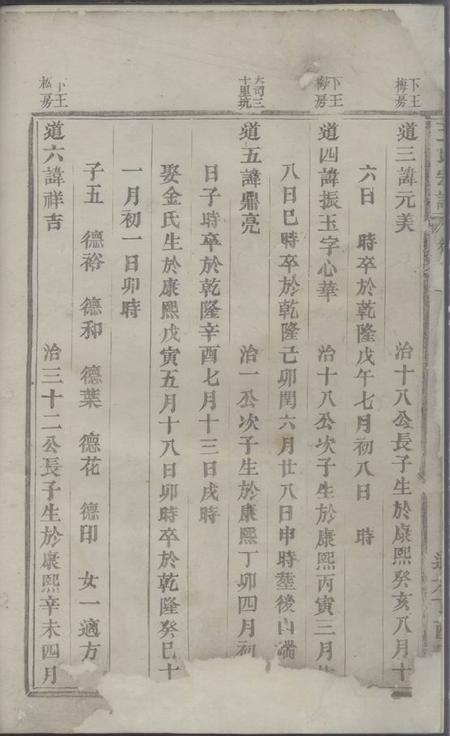 下王
梅房
道三諱元美　治十八公長子生於康熙癸亥八月十
六日　時卒於乾隆戊午七月初八日　時
下王
梅房
道四諱振玉字心華　治十八公次子生於康熙丙寅三月
八日巳時卒於乾隆己卯閏六月廿八日申時塟後山
大司三
十里坑
道五諱鼎亮　治一公次子生於康熙丁卯四月初
日子時卒於乾隆辛酉七月十三日戌時
娶金氏生於康熙戊寅五月十八日卯時卒於乾隆癸巳十
一月初一日卯時
子五　德裕　德和　德葉　德花　德印　女一適方
下王
松房
道六諱祥吉　治三十二公長子生於康熙辛未四月